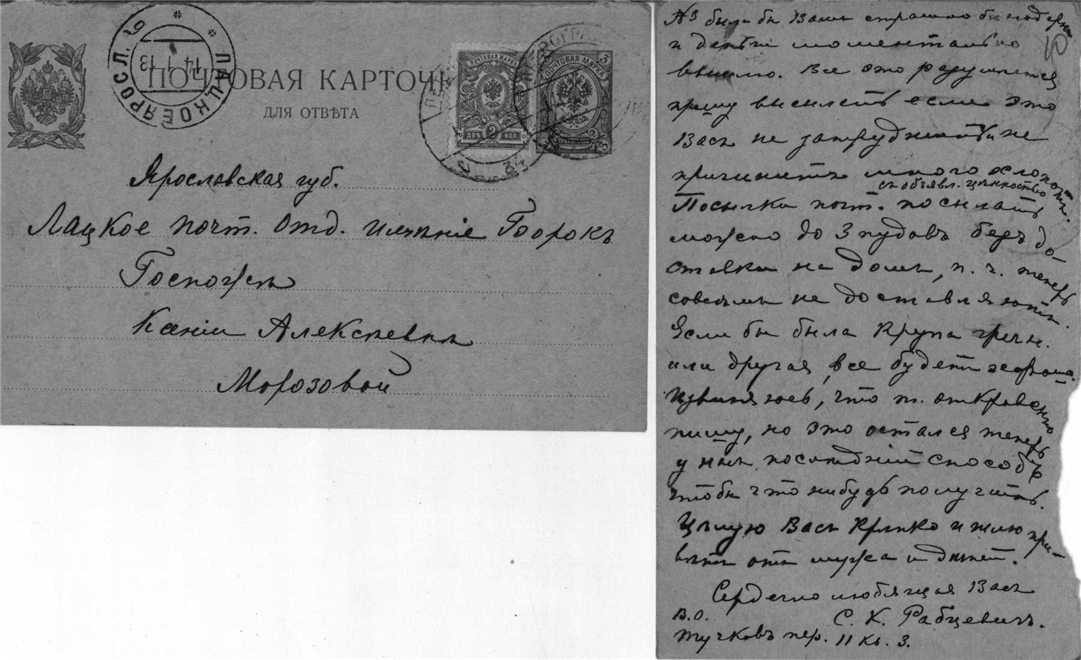 ПОЧТОВАЯ КАРТОЧК
ДЛЯ ОТВѢТА
ЛАЦКОЕ ЯРОСЛ. 
14 1 13
Ярославская губ.
Лацкое почт. отд. имѣніе Борокъ
Госпожѣ
Ксеніи Алексѣевнѣ
Морозовой
Я была бы Вамъ страшно благодарна
и деньги моментально
вышлю. Все это разумѣется
прошу выслать если это
Васъ не затруднитъ и не
причинитъ много хлопотъ.
съ объявл. цѣнностью
Посылки почт. посылать
можно до 3 пудовъ безъ до-
ставки на домъ, п. ч. теперь
совсѣмъ не доставляютъ.
Если бы была крупа гречн.
или другая, все будетъ хорошо.
Извиняюсь, что т. откровенно
пишу, но это остался теперь
у насъ послѣдній способъ
чтобы что нибудь получить.
Цѣлую Васъ крѣпко и шлю при-
вѣтъ отъ мужа и дѣтей.
Сердечно любящая Васъ
С. К. Рабцевичъ.
В.О.
Тучковъ пер. 11 кв. 3.